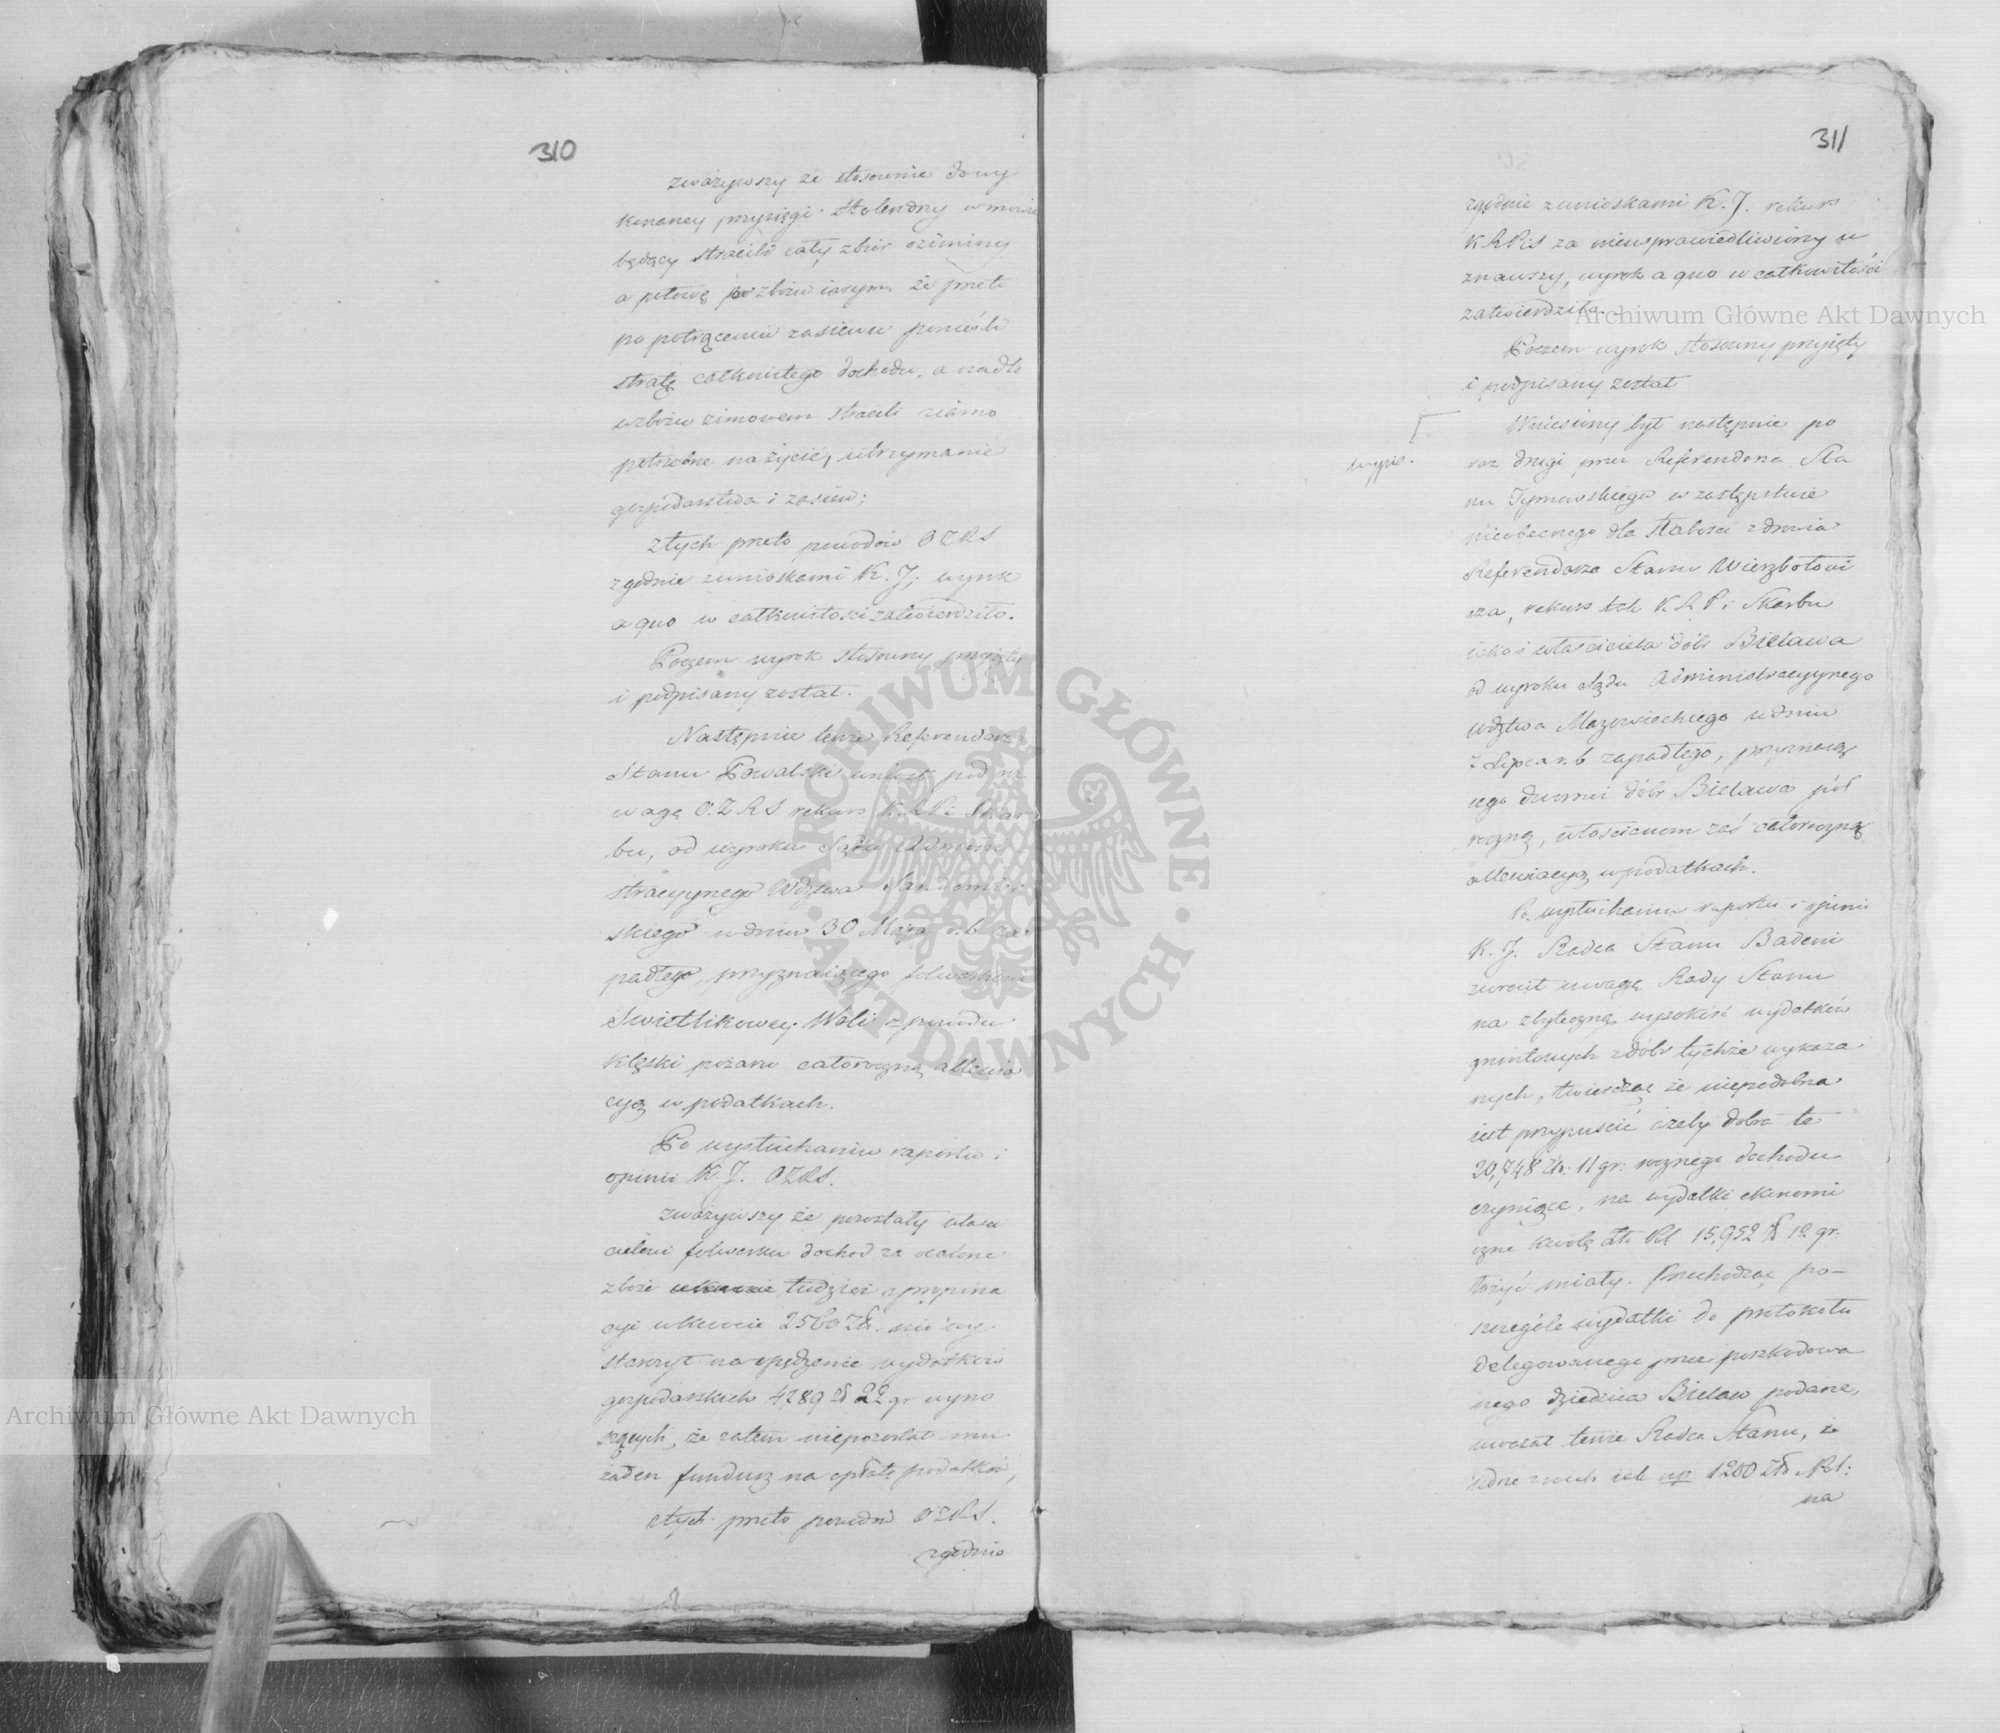 310
zważywszy że stosownie do wy
konaney przysięgi Holendry w mowie
będący stracili cały zbiór oziminy
a połowę w zbożu iarym że przeto
po potrąceniu zasiewu ponieśli
stratę całkowitego dochodu, a nadto
w zbożu zimowem stracili ziarno
potrzebne na życie, utrzymanie
gospodarstwa i zasiew;
z tych przeto powodów OZRS
zgodnie z wnioskami K. J. wyrok
a quo w całkowitości zatwierdziło.
Poczem wyrok stosowny przyięty
i podpisany został.
Następnie tenże Referendarz
Stanu Kowalski wniósł pod roz
wagę O.Z.R.S rekurs K.R.P. i Skar
bu, od wyroku Sądu Admini
stracyjnego Wdztwa Sandomir
skiego w dniu 30 Maja r.b za
padłego, przyznaiącego folwarkowi
Swietlikowey Woli z powodu
klęski pożaru całoroczną allewia
cyą w podatkach.
Po wysłuchaniu raportu i
opinii K. J. OZRS.
zważywszy że pozostały właści
cielowi folwarku dochód za ocalone
zboże tudzież z propina
cyi w kwocie 2560 Zł. nie wy
starczył na opędzenie wydatków
gospodarskich 4,289 zł 22 gr wyno
szących, że zatem niepozostał mu
żaden fundusz na opłatę podatków,
z tych przeto powodów OZRS.
zgodnie
311
zgodnie z wnioskami K. J. rekurs
KRPiS za nieusprawiedliwiony u
znawszy, wyrok a quo w całkowitości
zatwierdziło.
Poczem wyrok stosowny przyięty
i podpisany został
Wniesiony był następnie po
raz drugi przez Referendarza Sta
nu Tymowskiego w zastępstwie
nieobecnego dla słabości zdrowia
Referendarza Stanu Wierzbołowi
cza, rekurs tak K R P i Skarbu
iako i właściciela dóbr Bielawa
od wyroku Sądu Administracyjnego
Wdztwa Mazowieckiego w dniu
Lipca r.b zapadłego, przyznaią
cego dworowi dóbr Bielawa pół
roczną, włościanom zaś całoroczną
allewiacyą w podatkach.
Po wysłuchaniu raportu i opinii
K. J. Radca Stanu Badeni
zwrócił uwagę Rady Stanu
na zbyteczną wysokość wydatków
gruntowych z dóbr tychże wykaza
nych, twierdząc że niepodobna
iest przypuścić ażeby dobra te
20,748 Zł. 11 gr. rocznego dochodu
czyniące, na wydatki ekonomi
czne kwotę Zł. Pol 15,952 zł 12 gr.
łożyć miały. Przechodząc po-
szczególe wydatki do protokołu
Delegowanego przez poszkodowa
nego dziedzica Bielaw podane,
uważał tenże Radca Stanu, że
iedne z nich iak np 1200 Zł. Pol:
na